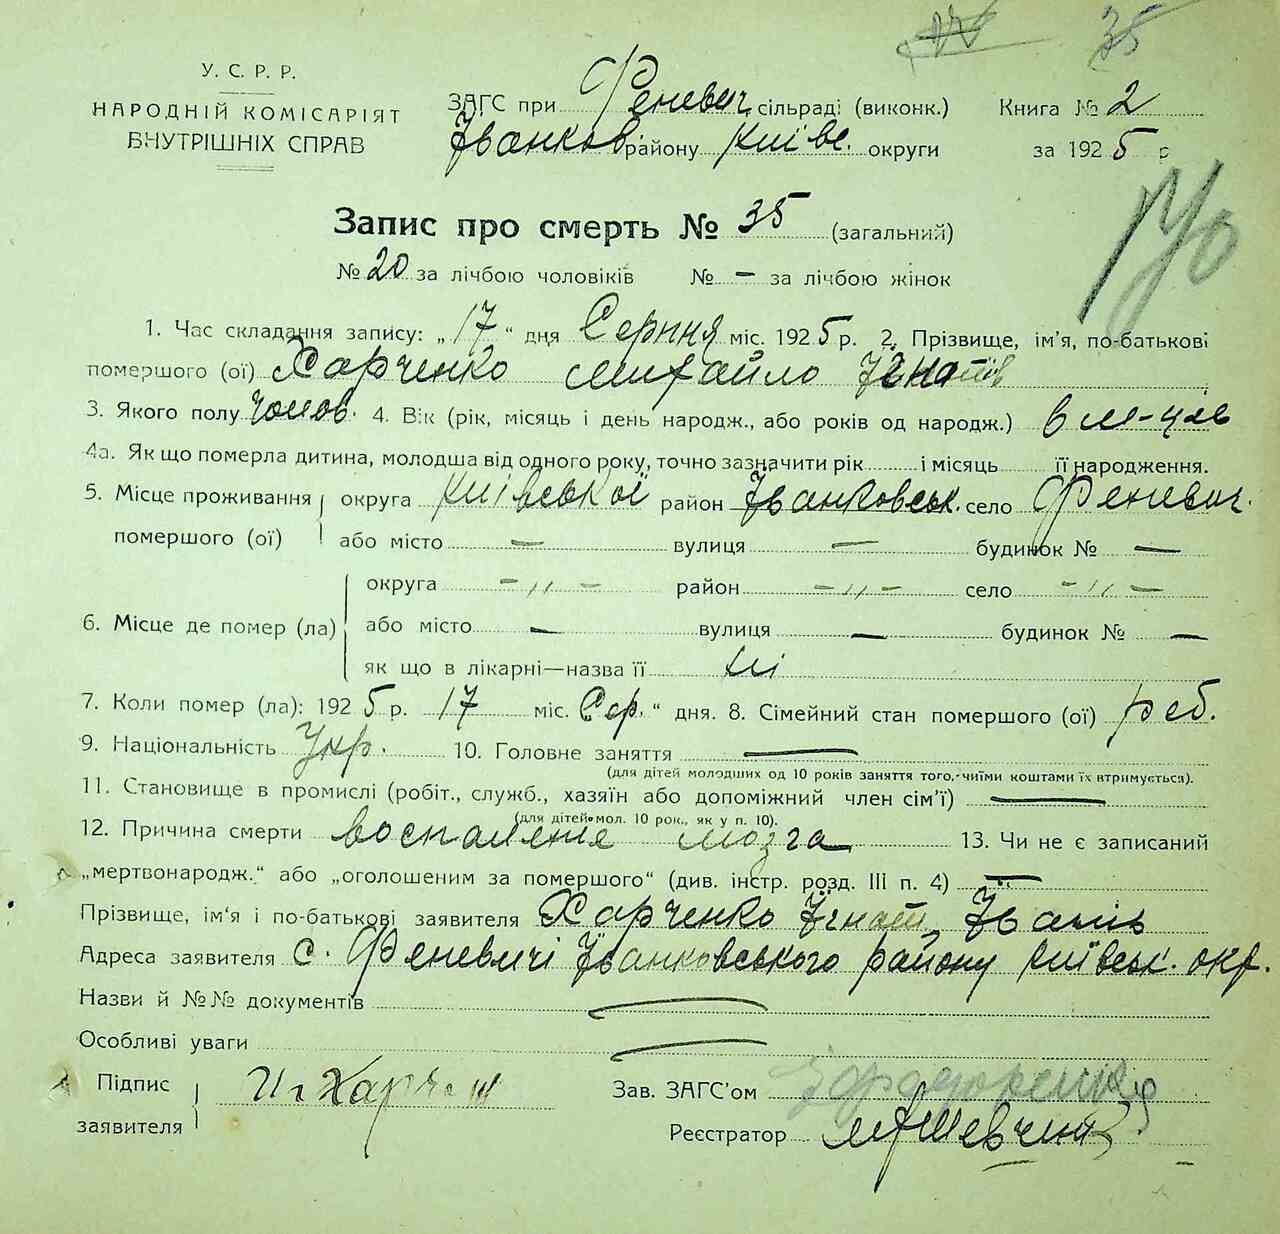 35
У. С. Р. Р.
НАРОДНІЙ КОМІСАРІЯТ
ВНУТРІШНІХ СПРАВ
ЗАГС при Феневич. сільраді (виконк.) Книга № 2
Іванков. району Київс. округи за 1925 р
Запис про смерть № 35 (загальний)
№ 20 за лічбою чоловіків № — за лічбою жінок
1. Час складання запису: „17“ дня Серпня міс. 1925 р. 2. Прізвище, ім'я, по-батькові
помершого (ої) Харченко Михайло Ігнатів
3. Якого полу чолов. 4. Вік (рік, місяць і день народж., або років од народж.) 6 м-ців
4а. Як що померла дитина, молодша від одного року, точно зазначити рік і місяць її народження.
5. Місце проживання округа Київської район Іванковськ. село Феневич.
помершого (ої) або місто — вулиця — будинок № —
округа -„- район -„- село -„-
6. Місце де помер (ла) або місто — вулиця — будинок № —
як що в лікарні—назва її ні
7. Коли помер (ла): 1925 р. 17 міс. Сер. “ дня. 8. Сімейний стан помершого (ої) реб.
9. Національність Укр. 10. Головне заняття —
(для дітей молодших од 10 років заняття того, чиїми коштами їх втримується).
11. Становище в промислі (робіт., служб., хазяїн або допоміжний член сім'ї) —
(для дітей мол. 10 рок., як у п. 10).
12. Причина смерти воспаленіе мозга 13. Чи не є записаний
„мертвонародж.“ або „оголошеним за помершого“ (див. інстр. розд. III п. 4) —
Прізвище, ім'я і по-батькові заявителя Харченко Ігнат Іванів
Адреса заявителя с. Феневичі Іванковського району Київськ. окр.
Назви й №№ документів —
Особливі уваги —
Підпис заявителя Иг Харчен
Зав. ЗАГС'ом
Реєстратор